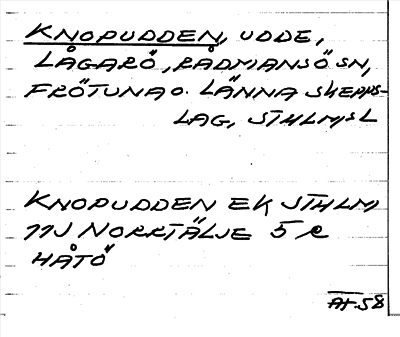 KNOPUDDEN, UDDE,
LÅGARÖ, RÅDMANSÖ SN,
FRÖTUNA O. LÄNNA SKEPPS-
LAG, STHLMSL
KNOPUDDEN EK STHLM
11J NORRTÄLJE 5 e
HÅTÖ
58